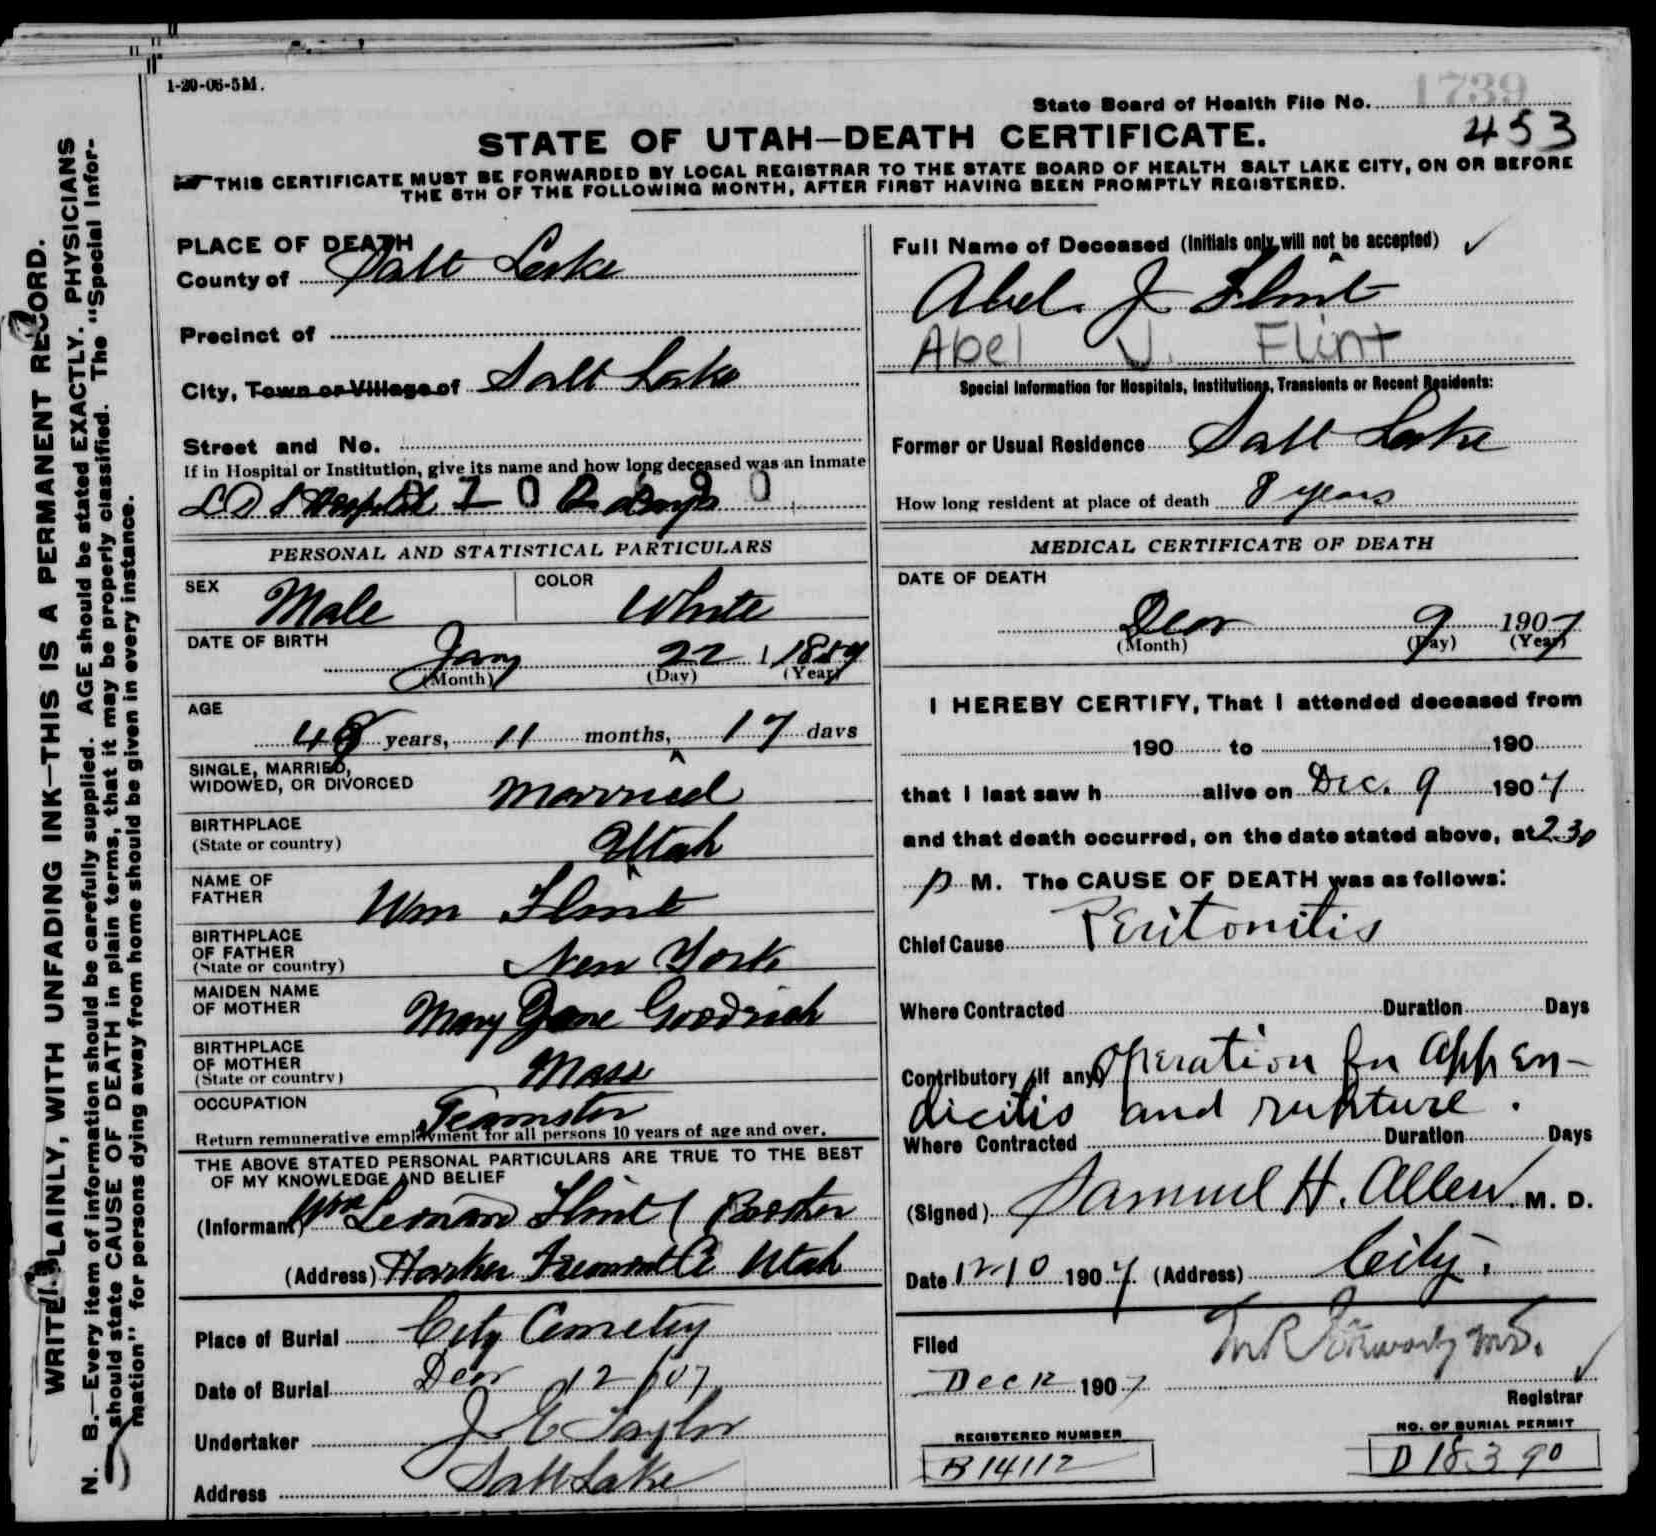 1-20-06-5M.
State Board of Health File No. 1739
453
STATE OF UTAH—DEATH CERTIFICATE.
THIS CERTIFICATE MUST BE FORWARDED BY LOCAL REGISTRAR TO THE STATE BOARD OF HEALTH SALT LAKE CITY, ON OR BEFORE
THE 5TH OF THE FOLLOWING MONTH, AFTER FIRST HAVING BEEN PROMPTLY REGISTERED.
WRITE PLAINLY, WITH UNFADING INK—THIS IS A PERMANENT RECORD.
N. B.—Every item of information should be carefully supplied. AGE should be stated EXACTLY. PHYSICIANS
should state CAUSE OF DEATH in plain terms, that it may be properly classified. The "Special Infor-
mation" for persons dying away from home should be given in every instance.
PLACE OF DEATH
County of Salt Lake
Precinct of
City, Town or Village of Salt Lake
Street and No.
If in Hospital or Institution, give its name and how long deceased was an inmate
L D S Hospital days
PERSONAL AND STATISTICAL PARTICULARS
SEX Male COLOR White
DATE OF BIRTH
Jany 22 1
(Month) (Day) (Year)
AGE
48 years, 11 months, 17 days
SINGLE, MARRIED,
WIDOWED, OR DIVORCED Married
BIRTHPLACE
(State or country) Utah
NAME OF
FATHER Wm Flint
BIRTHPLACE
OF FATHER
(State or country) New York
MAIDEN NAME
OF MOTHER Mary Jane Goodrich
BIRTHPLACE
OF MOTHER
(State or country) Mass
OCCUPATION Teamster
Return remunerative employment for all persons 10 years of age and over.
THE ABOVE STATED PERSONAL PARTICULARS ARE TRUE TO THE BEST
OF MY KNOWLEDGE AND BELIEF
(Informant) Wm Leonard Flint (
(Address) Utah
Place of Burial City Cemetery
Date of Burial Decr 12/07
Undertaker J E Taylor
Address Salt Lake
Full Name of Deceased (Initials only will not be accepted)
Abel. J Flint
Abel J. Flint
Special Information for Hospitals, Institutions, Transients or Recent Residents:
Former or Usual Residence Salt Lake
How long resident at place of death 8 years
MEDICAL CERTIFICATE OF DEATH
DATE OF DEATH
Decr 9 1907
(Month) (Day) (Year)
I HEREBY CERTIFY, That I attended deceased from
190 to 190
that I last saw h alive on Dec. 9 1907
and that death occurred, on the date stated above, at 2.30
p M. The CAUSE OF DEATH was as follows:
Chief Cause Peritonitis
Where Contracted Duration Days
Contributory (If any) Operation for appen-
dicitis and rupture.
Where Contracted Duration Days
(Signed) Samuel H. Allen M. D.
Date 12-10 1907 (Address) City.
Filed
Dec 12 1907
Registrar
REGISTERED NUMBER
B 14112
NO. OF BURIAL PERMIT
D 18390